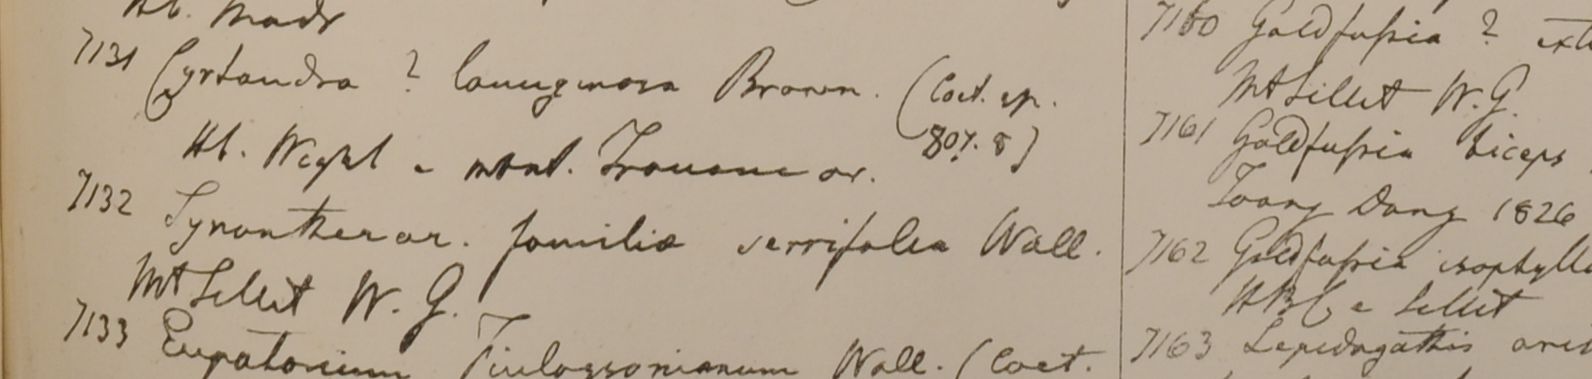 Hb. Madr
7131 Cyrtandra ? lanuginosa Brown. (Coet. sp.
807. 8)
Hb. Wight e mont. Travancor.
7132 Synantherar. familiæ serrifolia Wall.
Mt Sillet W. G.
7133 Eupatorium Finlaysonianum Wall. (Coet.
7160 Goldfussia ? ext
Mt Sillet W. G.
7161 Goldfussia biceps
Toong Dong 1826
7162 Goldfussia isophylla
HBC e Sillet
7163 Lepidagathis